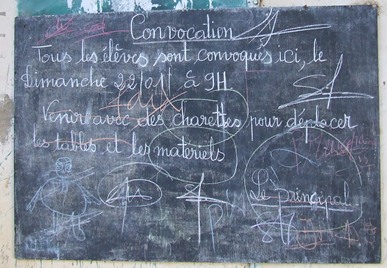 Convocation
Tous les élèves sont convoqués ici, le
Dimanche 22/01/ à 9H
Venir avec des charettes pour déplacer
les tables et les materiels
Le principal